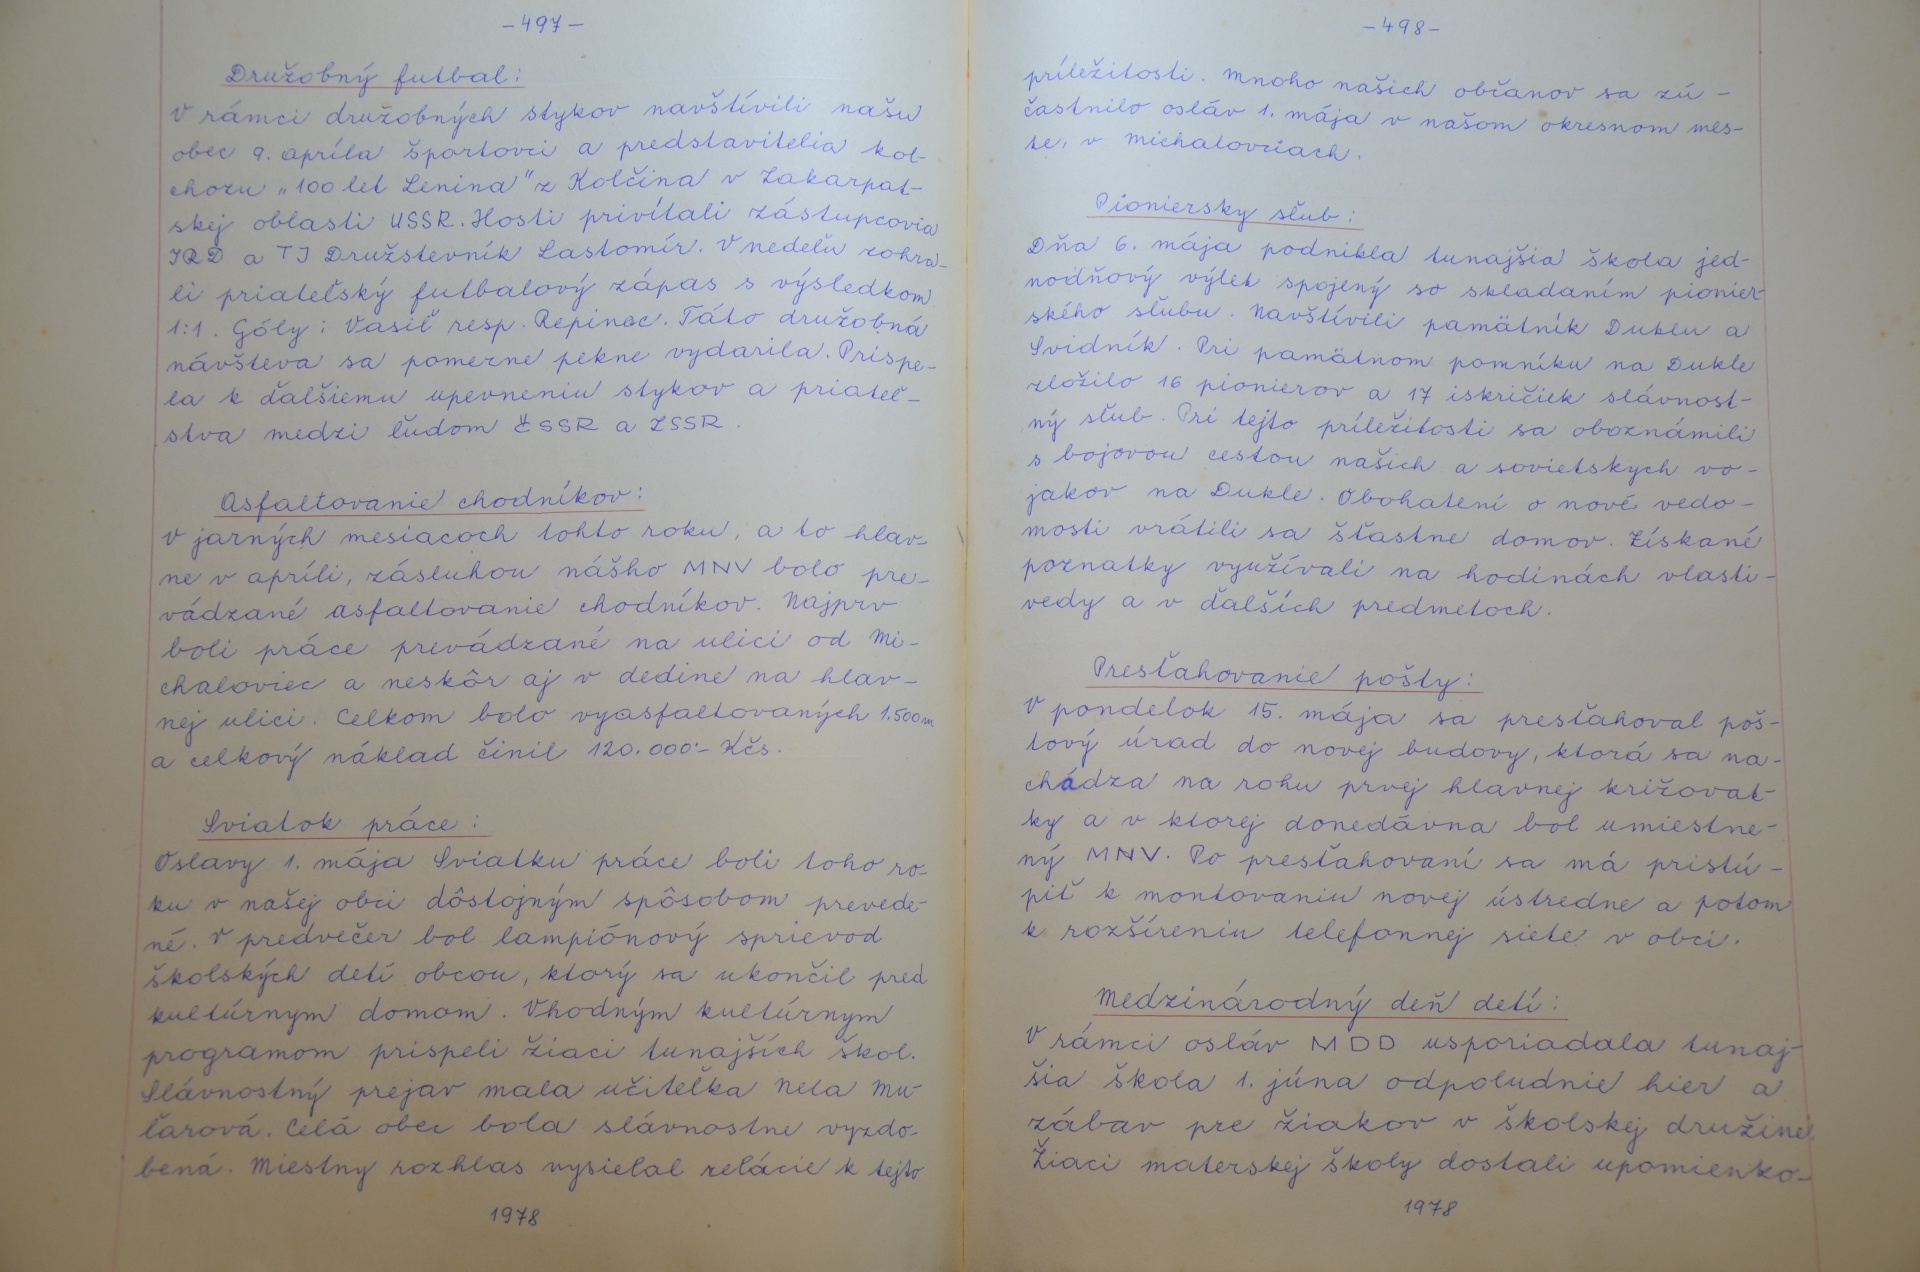 -497-
Družobný futbal:
V rámci družobných stykov navštívili našu
obec 9. apríla športovci a predstavitelia kol-
chozu „100 let Lenina" z Kolčina v Zakarpat-
skej oblasti USSR. Hosti privítali zástupcovia
JRD a TJ Družstevník Lastomír. V nedeľu zohra-
li priateľský futbalový zápas s výsledkom
1:1. Góly: Vasiľ resp. Repinec. Táto družobná
návšteva sa pomerne pekne vydarila. Prispe-
la k ďalšiemu upevneniu stykov a priateľ-
stva medzi ľudom ČSSR a ZSSR.
Asfaltovanie chodníkov:
V jarných mesiacoch tohto roku, a to hlav-
ne v apríli, zásluhou nášho MNV bolo pre-
vádzané asfaltovanie chodníkov. Najprv
boli práce prevádzané na ulici od Mi-
chaloviec a neskôr aj v dedine na hlav-
nej ulici. Celkom bolo vyasfaltovaných 1.500 m
a celkový náklad činil 120.000.- Kčs.
Sviatok práce:
Oslavy 1. mája Sviatku práce boli toho ro-
ku v našej obci dôstojným spôsobom prevede-
né. V predvečer bol lampiónový sprievod
školských detí obcou, ktorý sa ukončil pred
kultúrnym domom. Vhodným kultúrnym
programom prispeli žiaci tunajších škol.
Slávnostný prejav mala učiteľka Nela Mu-
ľarová. Celá obec bola slávnostne vyzdo-
bená. Miestny rozhlas vysielal relácie k tejto
1978
-498-
príležitosti. Mnoho našich občanov sa zú-
častnilo osláv 1. mája v našom okresnom mes-
te, v Michalovciach.
Pioniersky sľub:
Dňa 6. mája podnikla tunajšia škola jed-
nodňový výlet spojený so skladaním pionier-
ského sľubu. Navštívili pamätník Duklu a
Svidník. Pri pamätnom pomníku na Dukle
zložilo 16 pionierov a 17 iskričiek slávnost-
ný sľub. Pri tejto príležitosti sa oboznámili
s bojovou cestou našich a sovietskych vo-
jakov na Dukle. Obohatení o nové vedo-
mosti vrátili sa šťastne domov. Získané
poznatky využívali na hodinách vlasti-
vedy a v ďalších predmetoch.
Presťahovanie pošty:
V pondelok 15. mája sa presťahoval poš-
tový úrad do novej budovy, ktorá sa na-
chádza na rohu prvej hlavnej križovat-
ky a v ktorej donedávna bol umiestne-
ný MNV. Po presťahovaní sa má pristú-
piť k montovaniu novej ústredne a potom
k rozšíreniu telefonnej siete v obci.
Medzinárodný deň detí:
V rámci osláv MDD usporiadala tunaj-
šia škola 1. júna odpoludnie hier a
zábav pre žiakov v školskej družine.
Žiaci materskej školy dostali upomienko-
1978